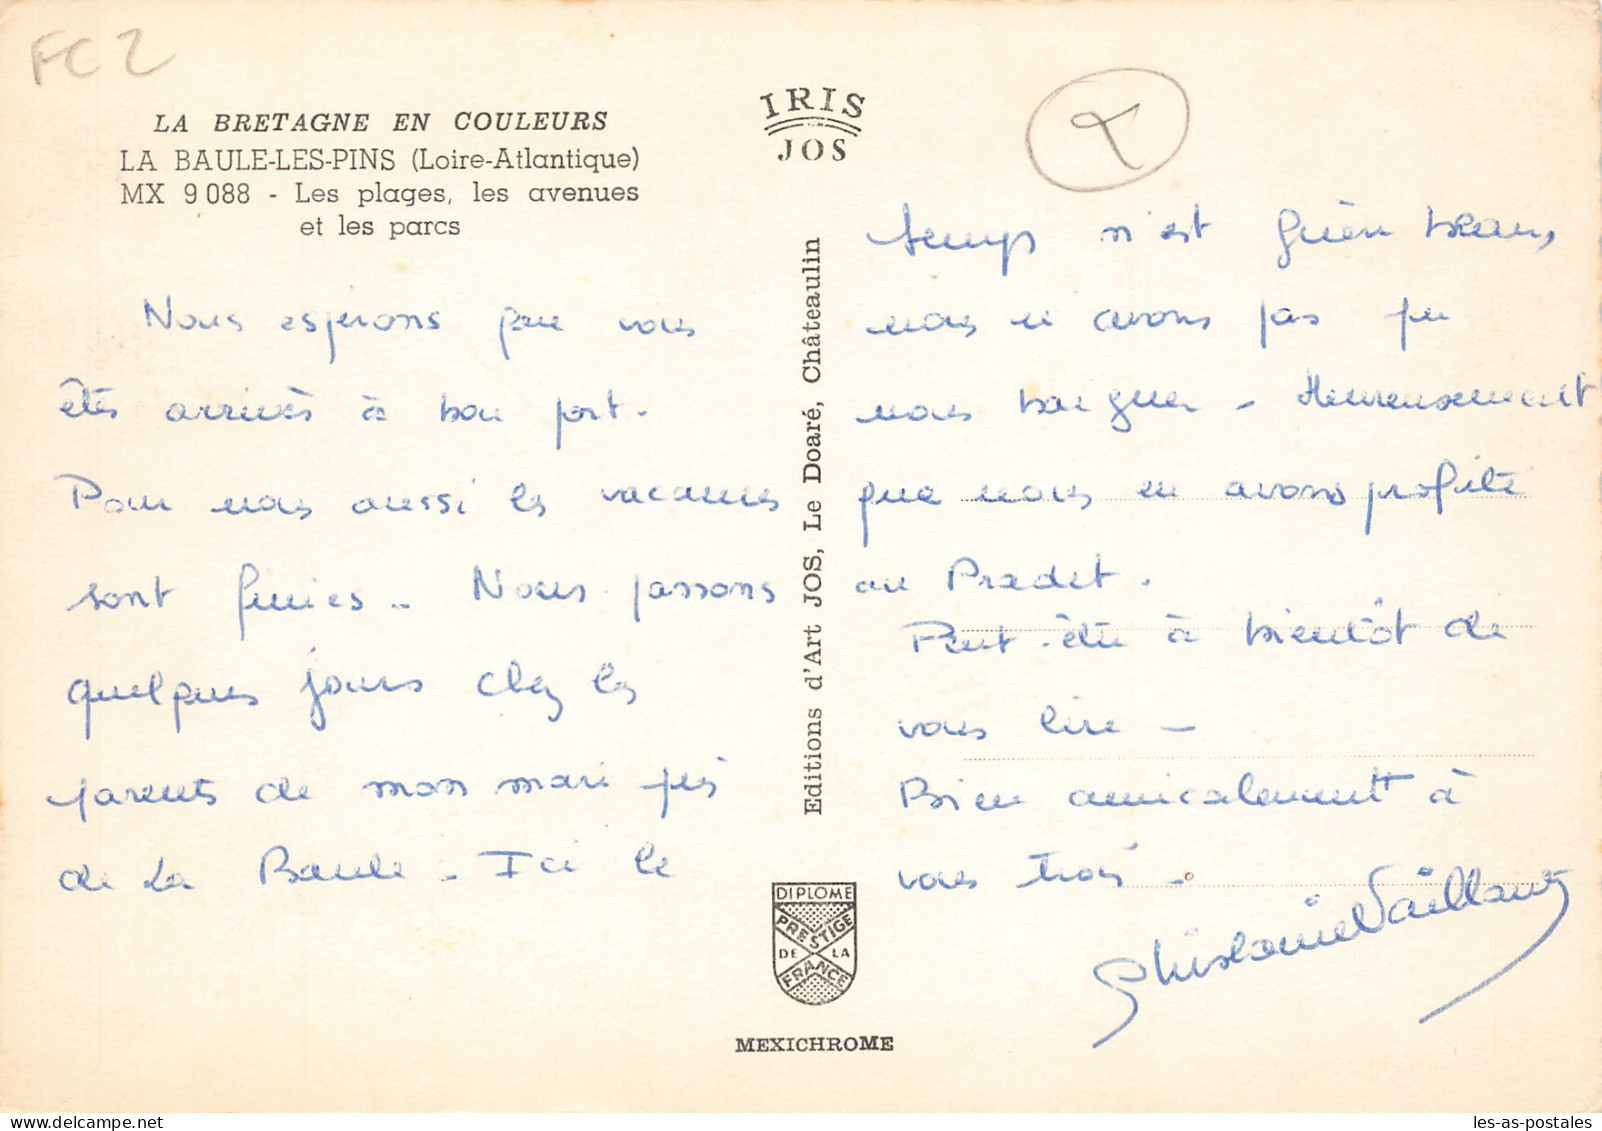 FC 2
LA BRETAGNE EN COULEURS
LA BAULE-LES-PINS (Loire-Atlantique)
MX 9 088 - Les plages, les avenues
et les parcs
Nous espérons que vous
êtes arrivés à bon port.
Pour nous aussi les vacances
sont finies.. Nous passons
quelques jours chez les
parents de mon mari près
de La Baule - Ici le
IRIS
JOS
Editions d'Art JOS, Le Doaré, Châteaulin
DIPLOME
PRESTIGE
DE LA
FRANCE
MEXICHROME
temps n'est guère beau,
nous n'avons pas pu
nous baigner - Heureusement
que nous en avons profité
au Pradet.
Peut-être à bientôt de
vous lire -
Bien amicalement à
vous trois -
Ghislaine Vaillant
les-as-postales